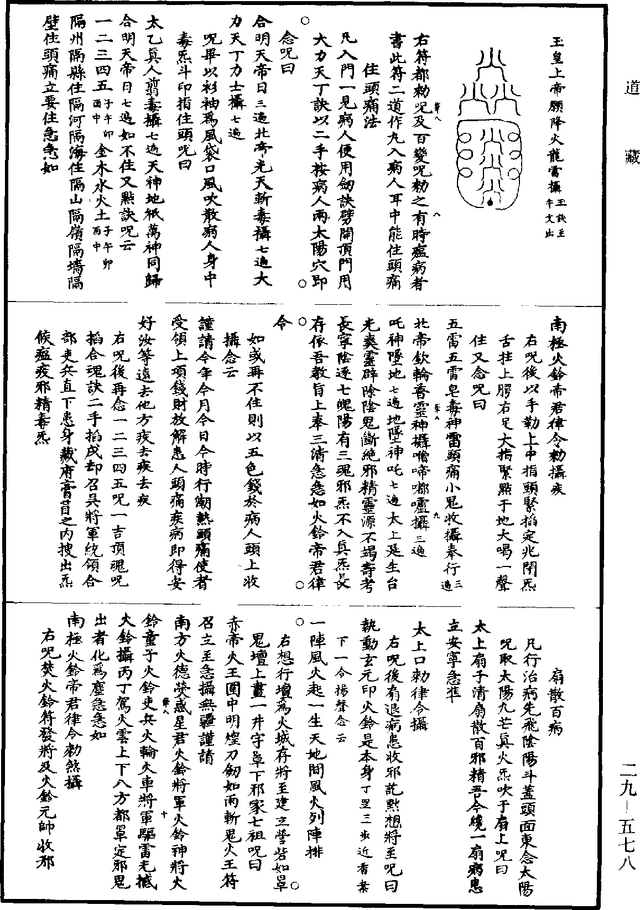 道藏
玉皇上帝願降火龍雷攝玉訣至午文出
右符都勑呪及百變呪勑之有時瘟病者
書此符二道作丸入病人耳中能住頭痛
住頭痛法
凡入門一見病人便用劒訣劈開頂門用
大力天丁訣以二手按病人兩太陽穴即
念呪曰
合明天帝日三遍北帝光天斬毒攝七遍大
力天丁力士攝七遍
呪畢以衫袖為風袋口風吹散病人身中
毒炁斗印指住頭呪曰
太乙真人剪毒攝七遍天神地祇萬神同歸
合明天帝日七遍如不住又點訣呪云
一二三四五子午卯酉中金木水火土子午卯酉中
隔州隔縣住隔河隔海住隔山隔嶺隔墻隔
壁住頭痛立要住急急如
南極火鈴帝君律令勑攝疾
右呪後以手勒上中指頭緊掐定兆閉炁
舌拄上腭右足大指緊點于地大喝一聲
住又念呪曰
五雷五雷皂毒神雷頭痛小鬼收攝奉行三遍
北帝欽輪香靈神攝噌啼嘟嚧攝三遍
吒神墜地七遍地墜神吒七遍太上是生台
光爽靈辟除陰鬼斷絕邪精靈源不竭壽考
長寧陰逐七魄陽有三魂邪炁不入真炁長
存依吾教旨上奉三清急急如火鈴帝君律
令
如或再不住則以五色錢於病人頭上收
攝念云
謹請今年今月今日今時行瘹熱頭痛使者
受領上項錢財放解患人頭痛疾病即得安
好汝等遠去他方疾去疾去疾
右呪後再念一二三四五呪一吉頂魂呪
掐合魂訣二手掐成却召吳將軍紋領合
部吏兵直下患身藏府膏肓之內搜出炁
候瘟疫邪精毒炁
扇散百病
凡行治病先飛陰陽斗蓋頭面東念太陽
呪取太陽九芒真火炁吹于扇上呪曰
太上扇子清扇散百邪精吾今繞一扇病患
立安寧急準
太上口勑律令攝
右呪後有退病患收邪訖默想將至呪曰
執動玄元印火鈴是本身丁罡三步近看葉
下一令揚聲念云
一陣風火起一生天地間風火列陣排
右想行壇為火城存將至建立營砦如單
鬼壇上畫一井字單下邪家七祖呪曰
赤帝火王圍中明煌刀劒如雨斬鬼火王符
召立至急攝無疆謹請
南方火德熒惑星君火鈴將軍火鈴神將火
鈴童子火鈴吏兵火輪火車將軍驅雷光撼
火鈴攝丙丁駕火雲上下八方都罩定邪鬼
出者化為塵急急如
南極火鈴帝君律令勑煞攝
右呪焚火鈴符發將及火鈴元帥收邪
二九－五七八